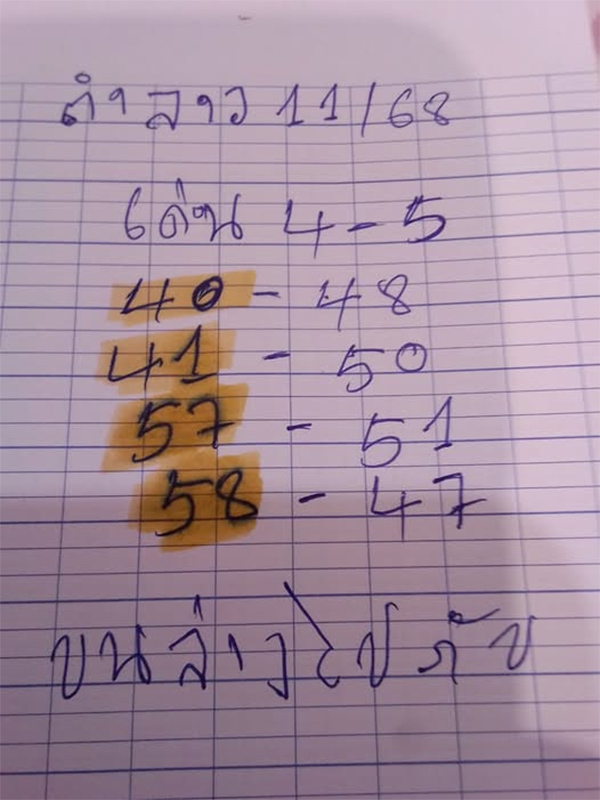 ตำลาว 11/68
เด่น 4-5
40 - 48
41 - 50
57 - 51
58 - 47
บนล่างไปครับ